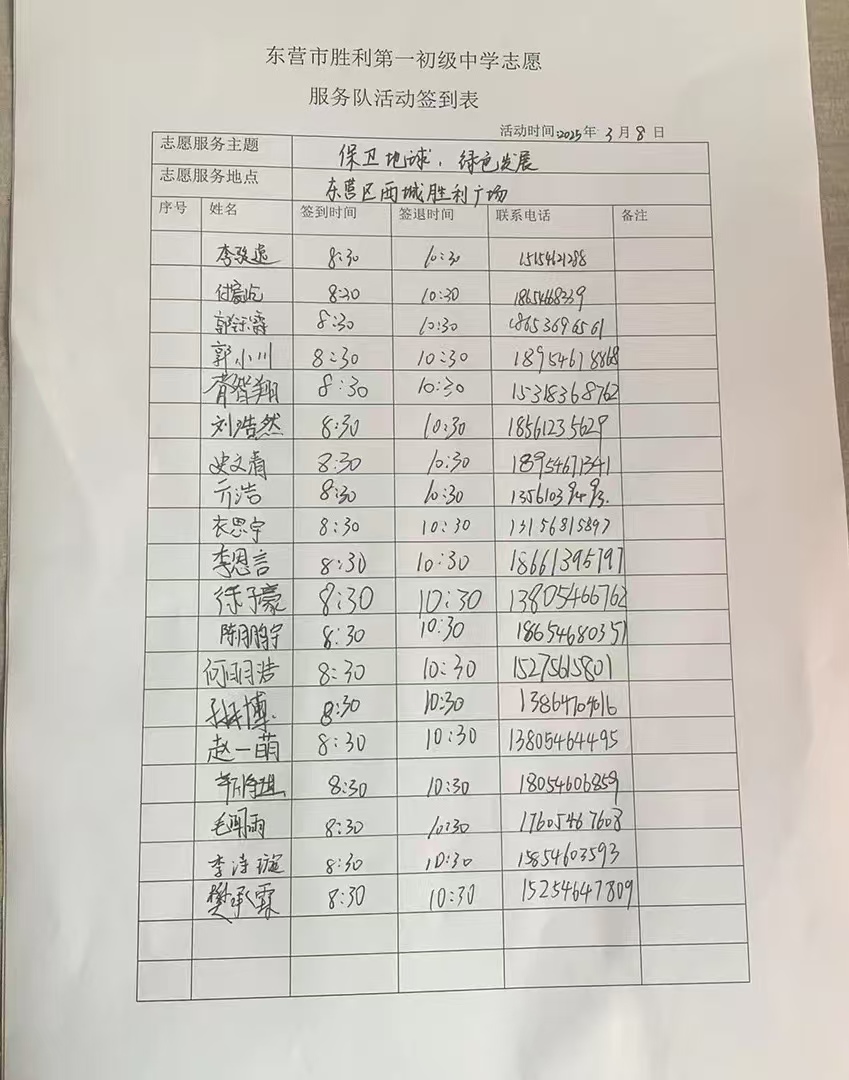 东营市胜利第一初级中学志愿
服务队活动签到表
活动时间 2025年 3月8日
志愿服务主题 保卫地球，绿色发展
志愿服务地点 东营区西城胜利广场
序号 姓名 签到时间 签退时间 联系电话 备注
李骏逸 8:30 10:30 15154621288
8:30 10:30 18654468339
8:30 10:30 18653696561
郭小川 8:30 10:30 18954678868
8:30 10:30 15318368762
刘浩然 8:30 10:30 18561235629
史文清 8:30 10:30 18954671341
亓浩 8:30 10:30
衣思宇 8:30 10:30 13156815897
李恩言 8:30 10:30 18661395797
徐子豪 8:30 10:30 13805466762
陈鹏宇 8:30 10:30 18654680351
何明浩 8:30 10:30 15275615801
8:30 10:30 13864704016
赵一萌 8:30 10:30 13805464495
8:30 10:30 18054606859
毛闻雨 8:30 10:30 17605467608
李诗璇 8:30 10:30 15854603593
樊承霖 8:30 10:30 15254647809